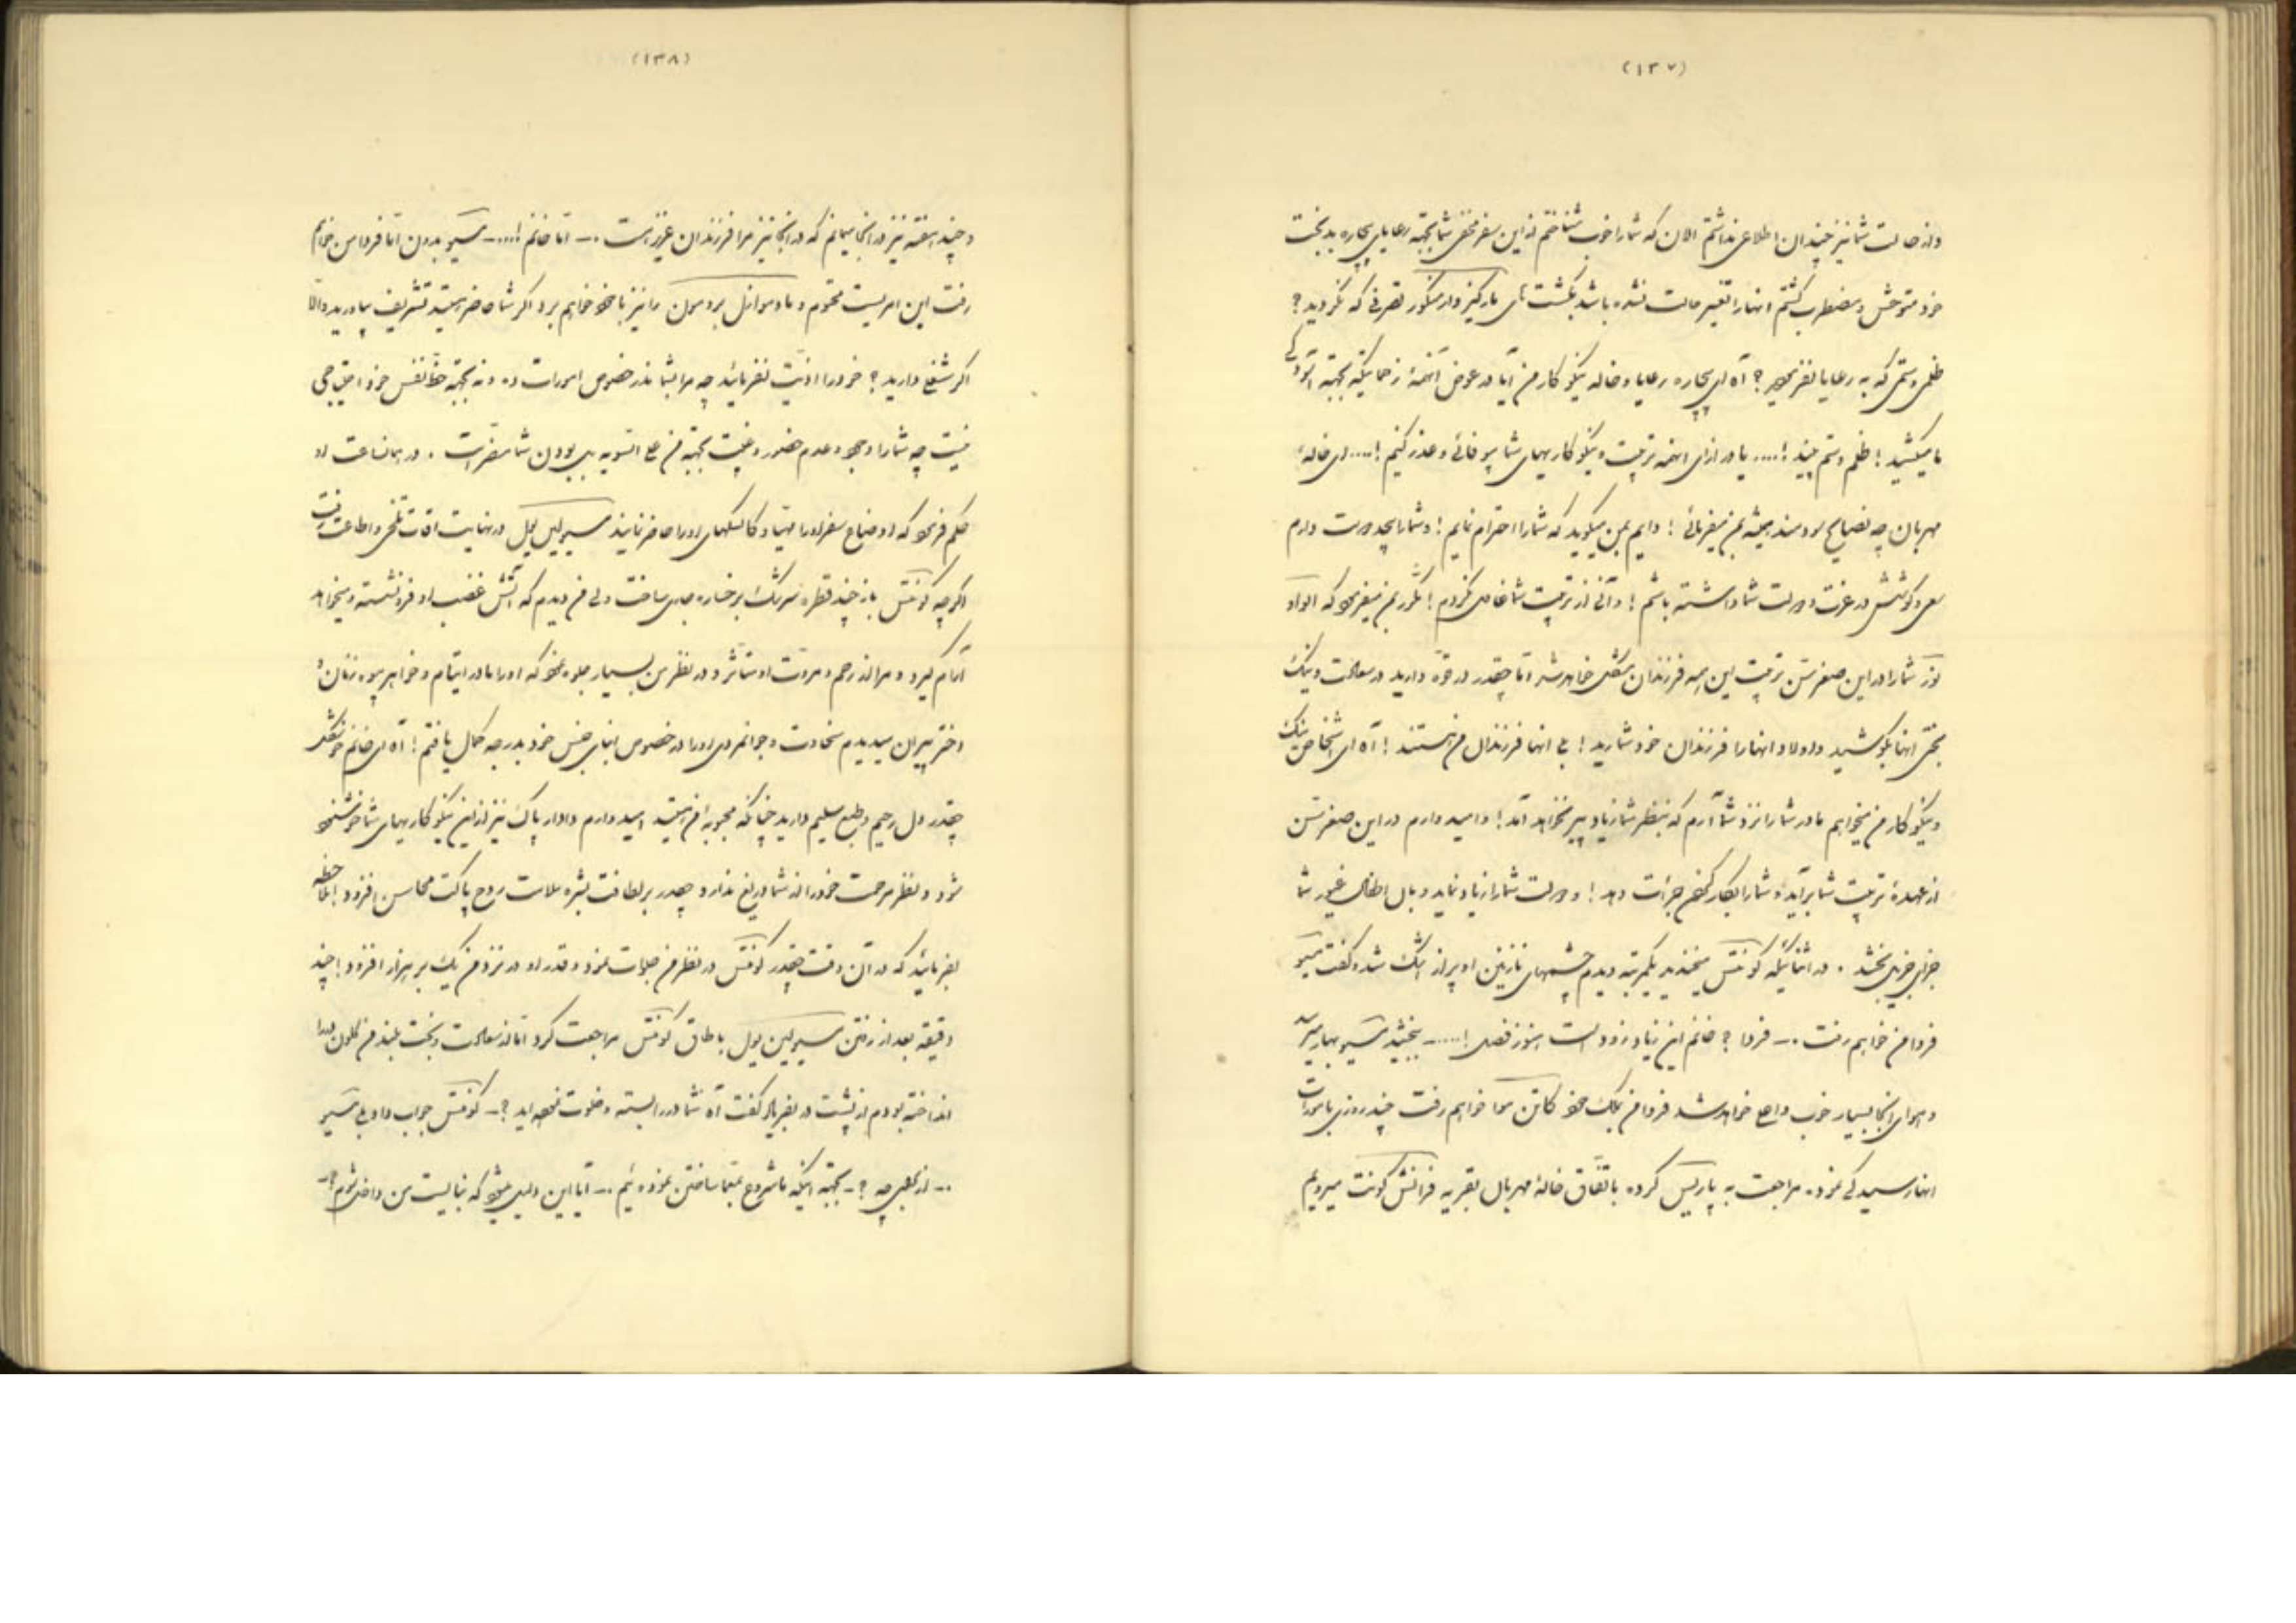 (۱۳۷)
و از حالت شما نیز چندان اطلاعی نداشتم الان که شما را خوب شناختم از این سفر مختصر شما بجهة رعایای بیچاره بدبخت
خود متوحش و مضطرب گشتم انها را تغییر حالت نشده باشد بگشت های مارکیز و از منکور تصرفی که نکردید؟
ظلم و ستم که به رعایا نفرمودید؟ آه ای بیچاره رعایا و خاله نیکو کار من آیا در عوض آنهمه زحماتیکه بجهة آسودگی
ما میکشید! ظلم و ستم بینید!.... یا در ازای اینهمه تربیت و نیکو کاریهای شما بیوفائی و عذر کنیم!.... ای خالهٔ
مهربان چه نصایح سودمند همیشه بمن میفرمائی! دایم بمن میگوید که شما را احترام نمایم! و شما را بیحد دوست دارم
سعی و کوشش در عزت و دولت شما داشته باشم! و آنی از تربیت شما غافل نگردم! مکرر بمن میفرمود که اگر او
نوز شما را در این صغر سن تربیت این همه فرزندان مشکل خواهد شد اما چقدر در قوه دارید در سعادت و نیک
بختی انها بکوشید و اولاد انها را فرزندان خود شمارید! بلی انها فرزندان من هستند! آه ای اشخاص نیک
و نیکو کار من میخواهم مادر شما را نزد شما آرم که بنظر شما زیاد پیر نخواهد آمد! و امید دارم در این صغر سن
از عهدهٔ تربیت شما برآید و شما را بکار کردن جرأت دهد! و دولت شما را زیاد نماید و بال اطفال غیور شما
جزای خیر بخشد . در اثنائیکه کونتس میخندید یکمرتبه دیدم چشمهای نازنین او پر از اشک شد و گفت مسیو
فردا من خواهم رفت .ـ فردا؟ خانم این زیاد زود است هنوز فصل!.....ـ ببخشید مسیو بهار میرسد
و هوای انجا بسیار خوب و اعلی خواهد شد فردا من بملک خود کاتن موا خواهم رفت چند روزی بامورات
انها رسیدگی نموده مراجعت به پاریس کرده باتفاق خالهٔ مهربان بقریه فرانش کونت میرویم
(۱۳۸)
و چند هفته نیز در انجا میمانم که در انجا نیز مرا فرزندان عزیز است .ـ اما خانم!....ـ مسیو بدون اما فردا من خواهم
رفت این امریست محتوم و مادموازل بردمون را نیز با خود خواهم برد اگر شما حاضر هستید تشریف بیاورید والا
اگر شغلی دارید؟ خود را اذیت نفرمائید چه مرا بشما در خصوص امورات ده و نه بجهة حظ نفس خود احتیاجی
نیست چه شما را وجود و عدم حضور و غیبت بجهة من علی السویه بی بودن شما مضر است . در همانساعت او
حکم فرمود که اوضاع سفر او را مهیا و کالسکهای او را حاضر نمایند مسیو لین یول در نهایت اوقات تلخی و اطاعت رفت
اگر چه کونتس باز چند قطره سرشک بر رخساره جاری ساخت ولی من دیدم که آتش غضب او فرو نشسته و میخواهد
آرام گیرد و مرا از رحم و مروت او متأثر و در نظر من بسیار جلوه نمود که او را مادر ایتام و خواهر بیوه زنان و
دختر پیران میدیدم سخاوت و جوانمردی او را در خصوص ابنای جنس خود بدرجه کمال یافتم! آه ای خانم خوشگل
چقدر دل رحیم و طبع سلیم دارید چنانکه محبوبهٔ من هستید امید دارم دادار پاک نیز از این نیکو کاریهای شما خوشنود
شود و نظر مرحمت خود را از شما دریغ ندارد و چقدر بر لطافت بشره علامت روح پاکت محاسن افزود! ملاحظه
بفرمائید که در آن وقت چقدر کونتس در نظر من جلوات نمود و قدر او در نزد من یک بر هزار افزود! چند
دقیقه بعد از رفتن مسیو لین یول باطاق کونتس مراجعت کرد اما از سعادت و بخت بلند من کلون در را
انداخته بودم از پشت در بفریاد گفت آه شما در را بسته و خلوت نموده اید؟ـ کونتس جواب داد بلی مسیو
.ـ از برای چه؟ـ بجهة اینکه ما شروع بنغما ساختن نموده ئیم .ـ آیا این دلیل میشود که نبایست من داخل شوم؟ـ